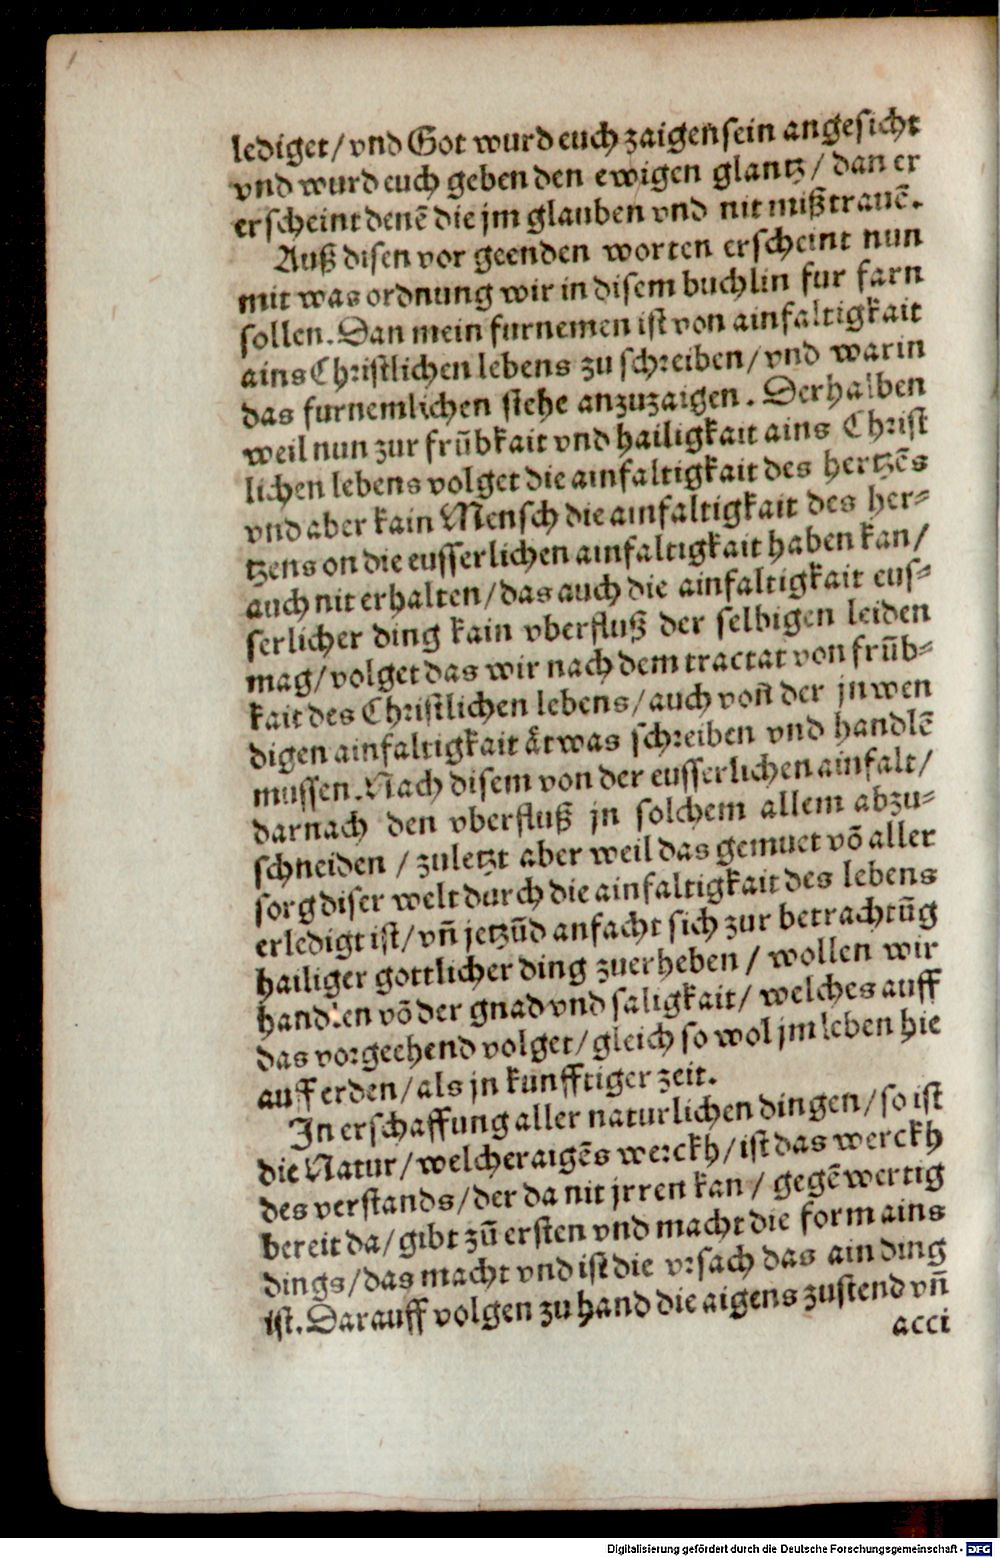 lediget/ vnd Got wurd euch zaigen sein angesicht
vnd wurd euch geben den ewigen glantz/ dan er
erscheint denē die jm glauben vnd nit mißtrauē.
Auß disen vor geenden worten erscheint nun
mit was ordnung wir in disem buchlin fur farn
sollen. Dan mein furnemen ist von ainfaltigkait
ains Christlichen lebens zu schreiben/ vnd warin
das furnemlichen stehe anzuzaigen. Derhalben
weil nun zur frūbkait vnd hailigkait ains Christ
lichen lebens volget die ainfaltigkait des hertzēs
vnd aber kain Mensch die ainfaltigkait des her⸗
tzens on die eusserlichen ainfaltigkait haben kan/
auch nit erhalten/ das auch die ainfaltigkait eus⸗
serlicher ding kain vberfluß der selbigen leiden
mag/ volget das wir nach dem tractat von frūb⸗
kait des Christlichen lebens/ auch von der jnwen
digen ainfaltigkait åtwas schreiben vnd handlē
mussen. Nach disem von der eusserlichen ainfalt/
darnach den vberfluß jn solchem allem abzu⸗
schneiden / zuletzt aber weil das gemuet vō aller
sorg diser welt durch die ainfaltigkait des lebens
erledigt ist/ vn̄ jetzūd anfacht sich zur betrachtūg
hailiger gottlicher ding zuerheben / wollen wir
handlen vō der gnad vnd saligkait/ welches auff
das vorgeehend volget/ gleich so wol jm leben hie
auff erden/ als jn kunfftiger zeit.
In erschaffung aller naturlichen dingen/ so ist
die Natur/ welcher aigēs werckh/ ist das werckh
des verstands/ der da nit jrren kan/ gegēwertig
bereit da/ gibt zū ersten vnd macht die form ains
dings/ das macht vnd ist die vrsach das ain ding
ist. Darauff volgen zu hand die aigens zustend vn̄
acci
Digitalisierung gefördert durch die Deutsche Forschungsgemeinschaft - DFG